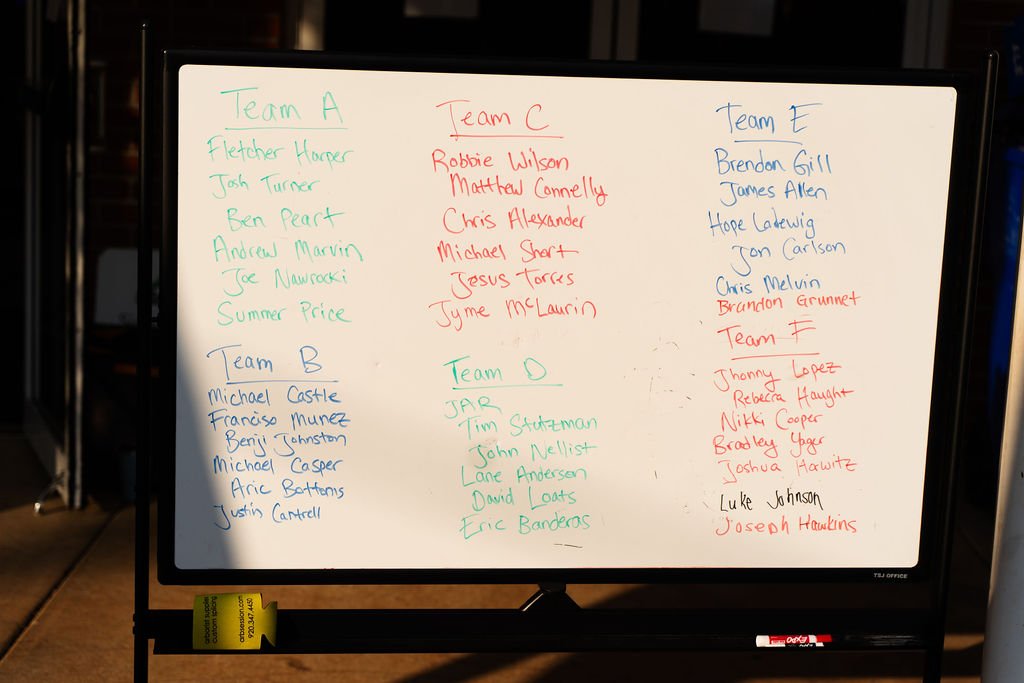 Team A
Fletcher Harper
Josh Turner
Ben Peart
Andrew Marvin
Joe Nawrocki
Summer Price
Team B
Michael Castle
Franciso Munez
Benji Johnston
Michael Casper
Aric Bottoms
Justin Cantrell
Team C
Robbie Wilson
Matthew Connelly
Chris Alexander
Michael Short
Jesus Torres
Jyme McLaurin
Team D
JAR
Tim Stutzman
John Nellist
Lane Anderson
David Loats
Eric Banderas
Team E
Brendon Gill
James Allen
Hope Ladewig
Jon Carlson
Chris Melvin
Brandon Grunnet
Team F
Jhonny Lopez
Rebecca Haught
Nikki Cooper
Bradley Yager
Joshua Hawitz
Luke Johnson
Joseph Hawkins
TSJ OFFICE
arborist supplies
custom splicing
arbsession.com
920.347.4450
EXPO